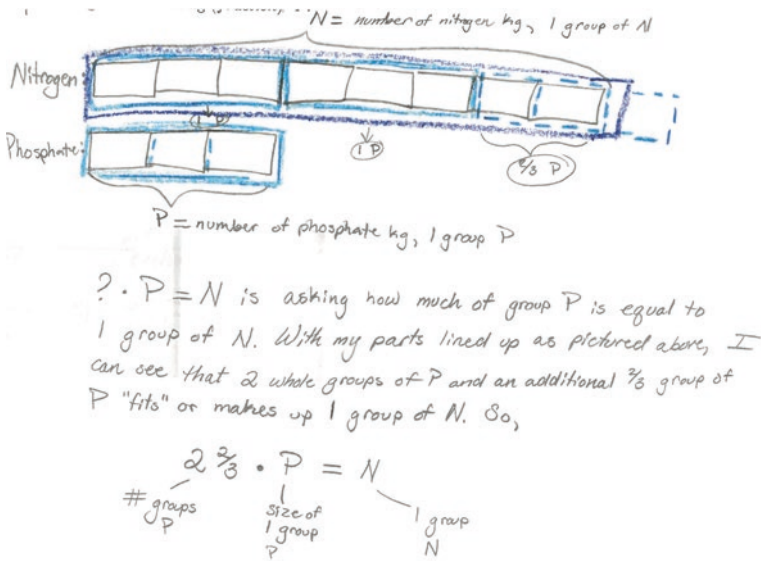 N = number of nitrogen kg, 1 group of N
Nitrogen:
(1 P)
Phosphate:
1 P
2/3 P
P = number of phosphate kg, 1 group P
? · P = N is asking how much of group P is equal to
1 group of N. With my parts lined up as pictured above, I
can see that 2 whole groups of P and an additional 2/3 group of
P "fits" or makes up 1 group of N. So,
2 2/3 · P = N
# groups P
size of 1 group P
1 group N